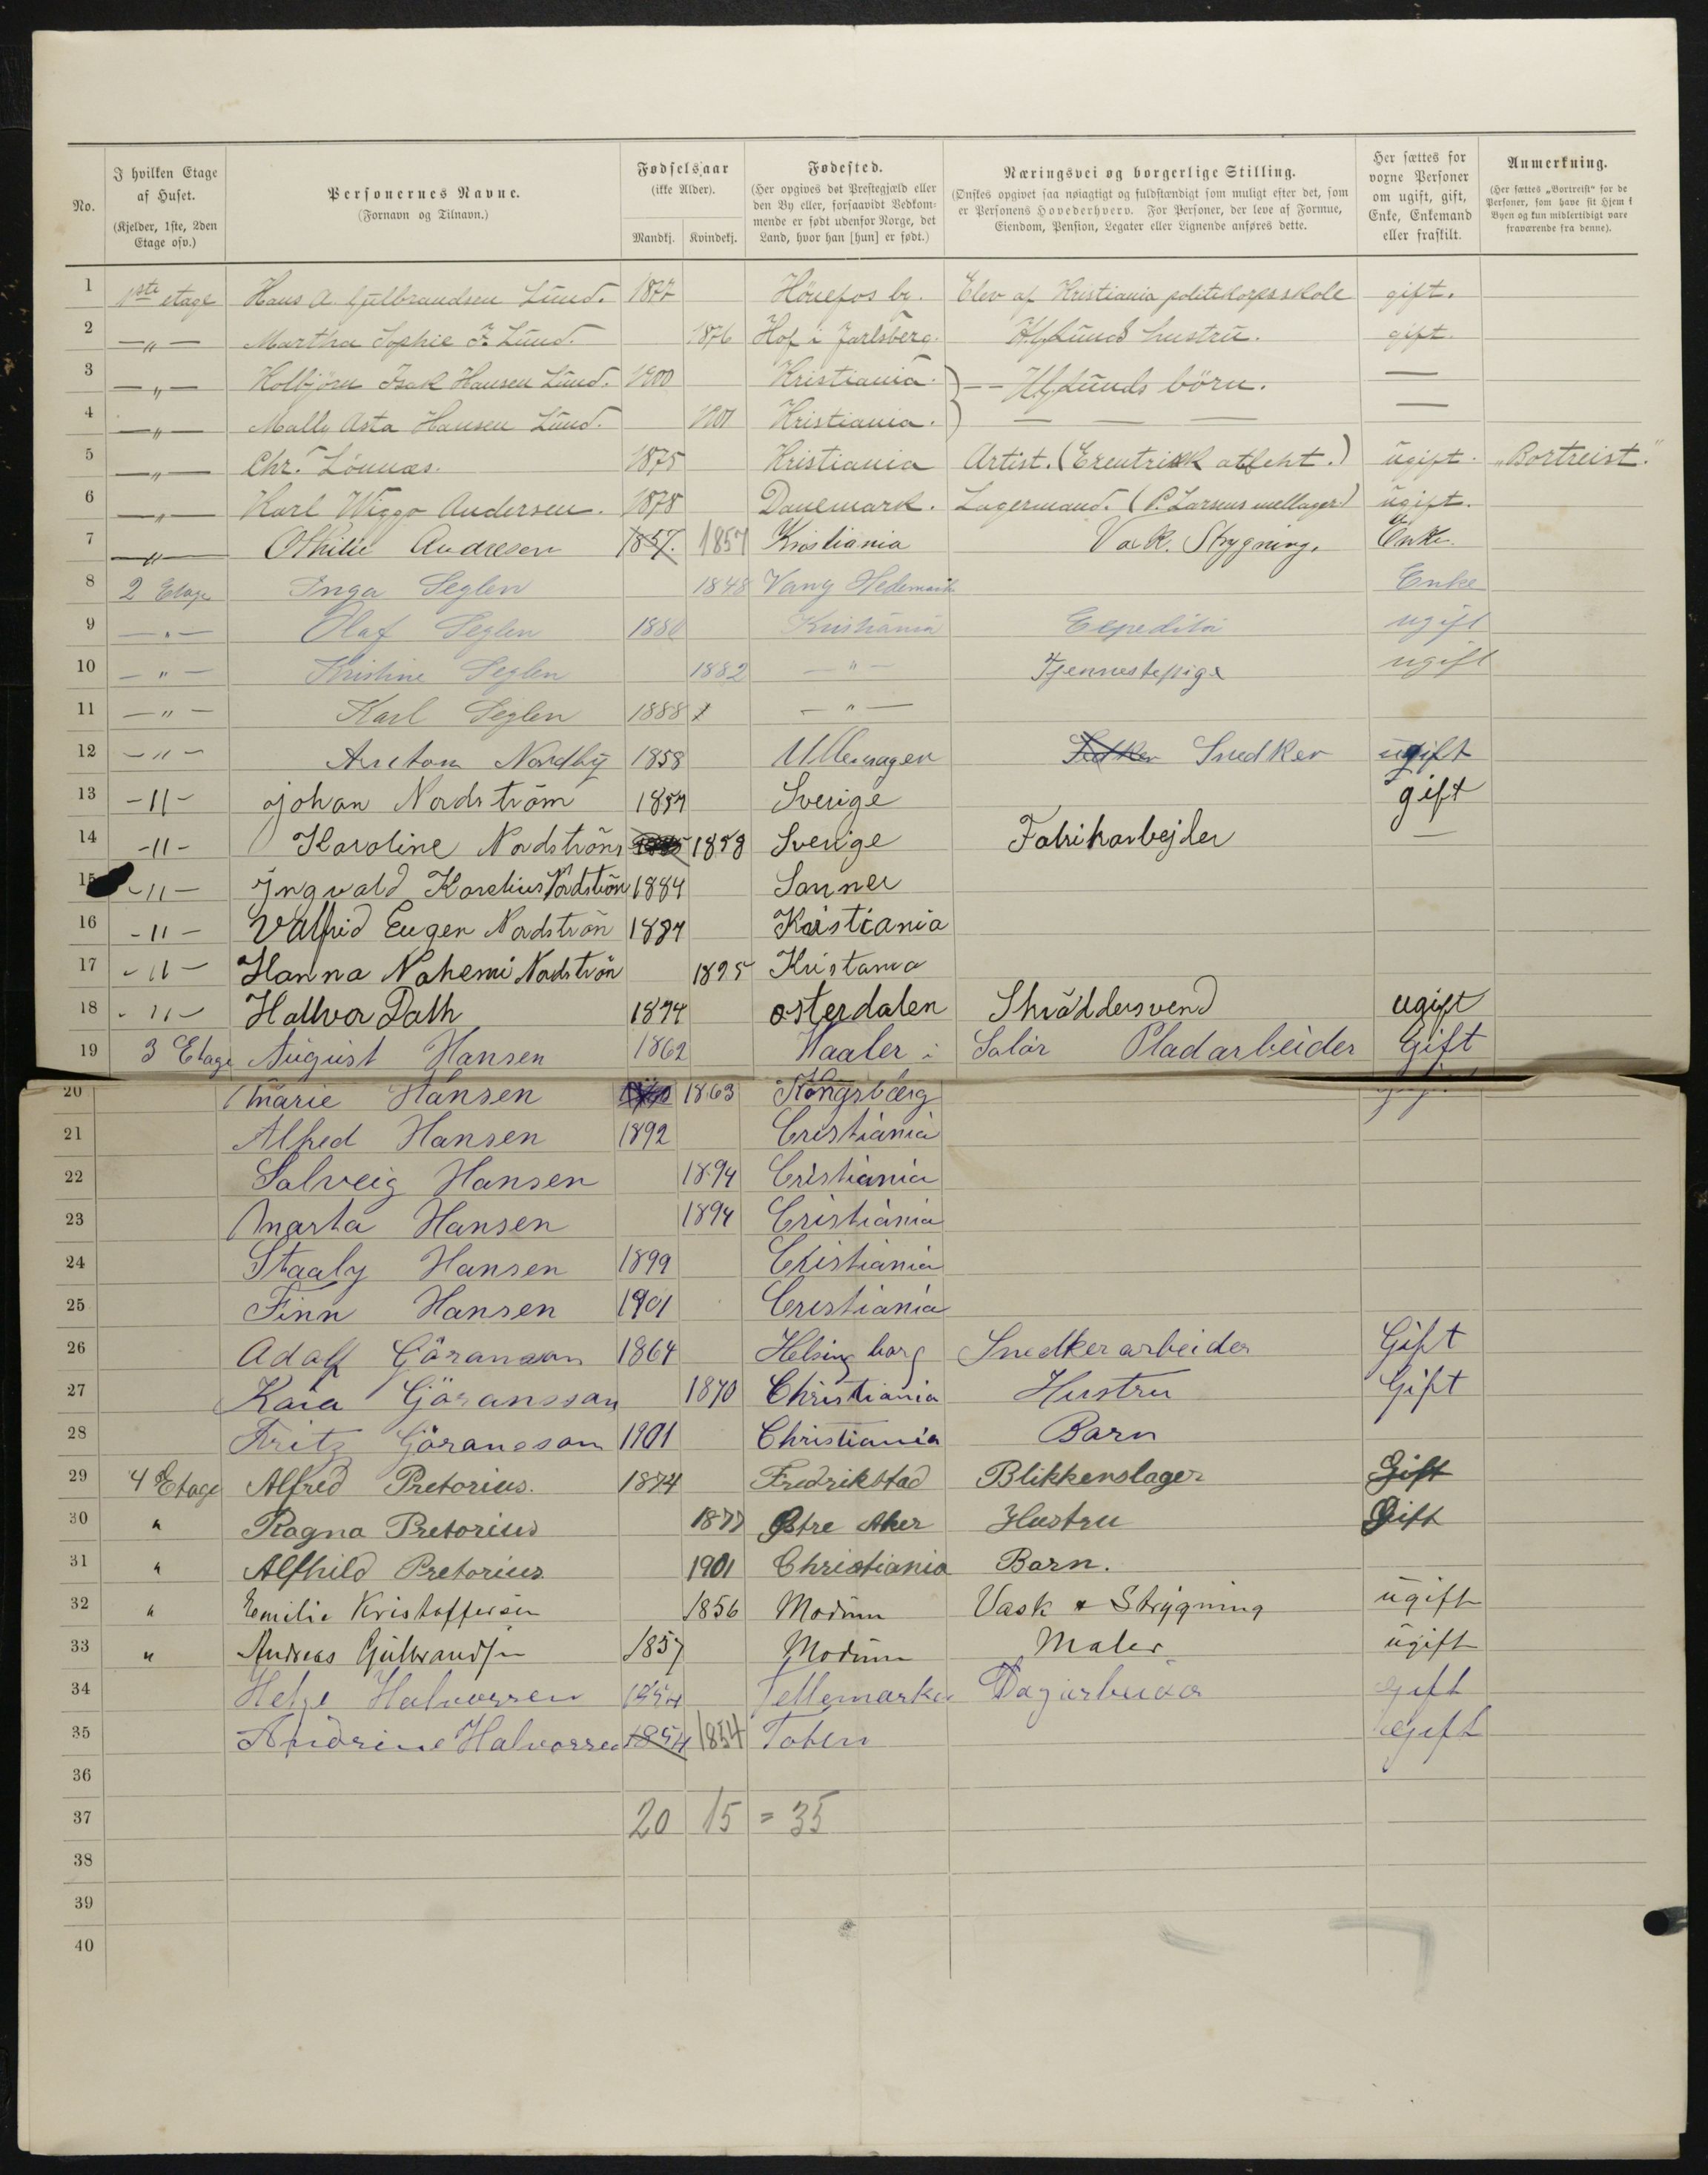 No. I hvilken Etage af Huset. (Kjelder, 1ste, 2den Etage osv.) Personernes Navne. (Fornavn og Tilnavn.) Fødselsaar (ikke Alder). Mandkj. Kvindekj. Fødested. (Her opgives det Prestegjæld eller den By eller, forsaavidt Vedkommende er født udenfor Norge, det Land, hvor han [hun] er født.) Næringsvei og borgerlige Stilling. (Ønskes opgivet saa nøiagtigt og fuldstændigt som muligt efter det, som er Personens Hovederhverv. For Personer, der leve af Formue, Eiendom, Pension, Legater eller Lignende anføres dette. Her sættes for voxne Personer om ugift, gift, Enke, Enkemand eller fraskilt. Anmerkning. (Her sættes „Bortreist“ for de Personer, som have sit Hjem i Byen og kun midlertidigt være fraværende fra denne).
1 1ste etage Hans A. Gulbrandsen Lund. 1877 Hönefos by. Elev af Kristiania politikorpsskole gift.
2 —„— Martha Sophie F. Lund. 1876 Hof i Jarlsberg. Lunds hustru. gift.
3 —„— Kolbjörn Isak Hansen Lund. 1900 Kristiania. Lunds börn. —
4 —„— Malli Asta Hansen Lund. 1901 Kristiania. — — — —
5 —„— Chr. Lönnæs. 1875 Kristiania Artist. ugift. „Bortreist.“
6 —„— Karl Wiggo Andersen. 1878 Danemark. Lagermand. (P. Larsens mellager) ugift.
7 —„— Othilie Andresen 1857. 1857 Kristiania Vask. Strygning. Enke.
8 2 Etage Inga Seglen 1848 Vang Hedemark Enke
9 —„— Olaf Seglen 1880 Kristiania Expeditör ugift
10 —„— Kristine Seglen 1882 —„— Tjenneste pige ugift
11 —„— Karl Seglen 1888 —„—
12 —„— Anton Nordby 1858 Ullensagen Snedker ugift
13 —„— Johan Nordström 1857 Sverige gift
14 —„— Karoline Nordström 1858 Sverige Fabrikarbejder —
15 —„— Ingvald Karelius Nordström 1884 Sanner
16 —„— Valfrid Eugen Nordström 1887 Kristiania
17 —„— Hanna Nahemi Nordströn 1895 Kristania
18 —„— Hallvor Dath 1874 østerdalen Skräddersvend ugift
19 3 Etage August Hansen 1862 Vaaler i Solör Pladarbeider Gift
20 Marie Hansen 1863 Kongsberg
21 Alfred Hansen 1892 Cristiania
22 Solveig Hansen 1894 Cristiania
23 Marta Hansen 1894 Cristiania
24 Staaly Hansen 1899 Cristiania
25 Finn Hansen 1901 Cristiania
26 Adolf Göranson 1864 Helsingborg Snedkerarbeider Gift
27 Kaia Göransson 1870 Christiania Hustru Gift
28 Fritz Göranson 1901 Christiania Barn
29 4 Etage Alfred Pretorius. 1874 Fredrikstad Blikkenslager Gift
30 " Ragna Pretorius 1877 Østre Aker Hustru Gift
31 " Alfhild Pretorius 1901 Christiania Barn.
32 " Emilie Kristoffersen 1856 Modum Vask & Strygning ugift
33 " Andreas Gulbrandsen 1857 Modum Maler ugift
34 Helge Halvorsen 1854 Tellemarken Dagarbeider gift
35 Andrine Halvorsen 1854 1854 Toten Gift
36
37 20 15 = 35
38
39
40